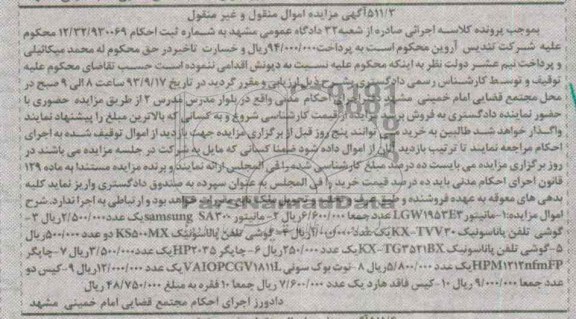 ۵۱۱/۳آگهی مزایده اموال منقول و غیر منقول
بموجب پرونده کلاسه اجرائی صادره از شعبه۳۲ دادگاه عمومی مشهد به شماره ثبت احکام ۱۲/۳۲/۹۳۰۰۶۹ محکوم
علیه شرکت تندیس آروین محکوم است به پرداخت ۹۴/۰۰۰/۰۰۰ریال و خسارت تاخیر در حق محکوم له محمد میکائیلی
و پرداخت نیم عشر دولت نظر به اینکه محکوم علیه نسبت به دیونش اقدامی ننموده است حسب تقاضای محکوم علیه
توقیف و توسط کارشناس رسمی دادگستری بشرح ذیل ارزیابی و مقرر گردید در تاریخ ۹۳/۹/۱۷ ساعت ۸ الی ۹ صبح در
محل مجتمع قضایی امام خمینی مشهد احکام مدنی واقع در بلوار مدرس مدرس ۲ از طریق مزایده حضوری با
حضور نماینده دادگستری به فروش برسد مزایده از قیمت کارشناسی شروع و به کسانی که بالاترین مبلغ را پیشنهاد نمایند
واگذار خواهد شد طالبین به خرید می توانند پنج روز قبل از برگزاری مزایده جهت بازدید از اموال توقیف شده به اجرای
احکام مراجعه نمایند تا ترتیب بازدید آنان از اموال داده شود ضمنا کسانی که مایل به شرکت در جلسه مزایده می باشند در
روز برگزاری مزایده می بایست ده درصد مبلغ کارشناسی شده را فی المجلس ارائه نمایند و برنده مزایده مستندا به ماده ۱۲۹
قانون اجرای احکام مدنی باید ده درصد قیمت خرید را فی المجلس به عنوان سپرده به صندوق دادگستری واریز نماید کلیه
بدهی های معوقه به عهده فروشنده و خواهد بود و ارتباطی به اجرا ندارد. شرح
اموال مزایده:۱-مانیتور LGW۱۹۵۳E۳ عدد جمعا ۶/۶۰۰/۰۰۰ ریال ۲- مانیتور samsung SA۳۰۰ یک عدد ۲/۵۰۰/۰۰۰ ریال ۳-
گوشی تلفن پاناسونیک KX-TV۷۳۰ یک عدد ریال ۴- گوشی تلفن پاناسونیک KS۵۰۰MX دو عدد ۵۰۰/۰۰۰ ریال
۵-گوشی تلفن پاناسونیک KX-TG۳۵۲۱BX یک عدد ۲۵۰/۰۰۰ ریال ۶- چاپگر HP۲۰۳۵ یک عدد ۳/۵۰۰/۰۰۰ ریال ۷-چاپگر
HPM۱۲۱۲nfmFP یک عدد ۵/۸۰۰/۰۰۰ ریال ۸- نوت بوک سونی VAIOPCGV۱۸۱۱L یک عدد ۱۲/۰۰۰/۰۰۰ ریال ۹- کیس دو
عدد جمعا ۹/۰۰۰/۰۰۰ ریال ۱۰- کیس فاقد هارد یک عدد ۷/۶۰۰/۰۰۰ ریال جمعا ۱۰ فقره به مبلغ ۴۸/۷۵۰/۰۰۰ ریال
دادورز اجرای احکام مجتمع قضایی امام خمینی مشهد